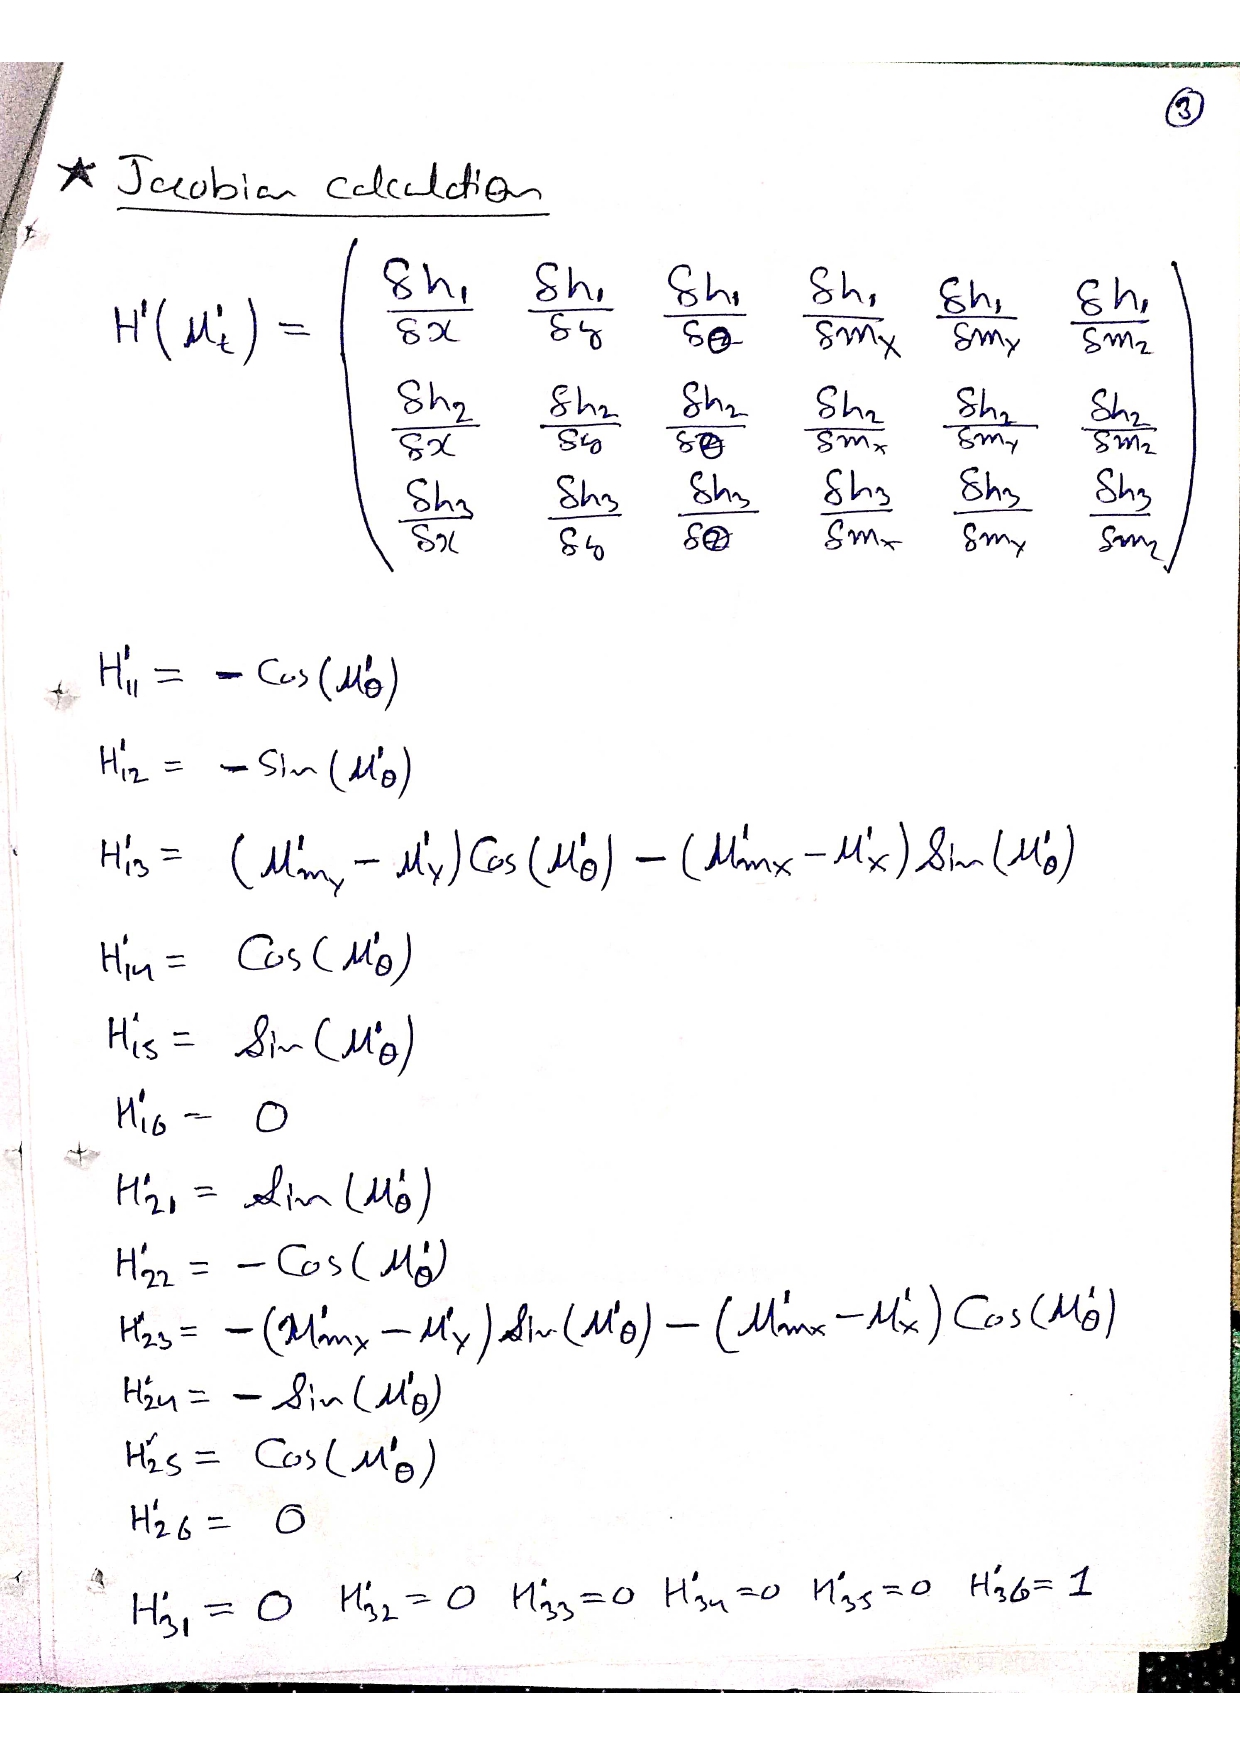 ③
★ Jacobian calculation
H'(μ't) = ( δh₁/δx δh₁/δy δh₁/δθ δh₁/δmx δh₁/δmy δh₁/δmz
δh₂/δx δh₂/δy δh₂/δθ δh₂/δmx δh₂/δmy δh₂/δmz
δh₃/δx δh₃/δy δh₃/δθ δh₃/δmx δh₃/δmy δh₃/δmz )
H'₁₁ = - Cos(μ'θ)
H'₁₂ = - Sin(μ'θ)
H'₁₃ = (μ'my - μ'y) Cos(μ'θ) - (μ'mx - μ'x) Sin(μ'θ)
H'₁₄ = Cos(μ'θ)
H'₁₅ = Sin(μ'θ)
H'₁₆ = 0
H'₂₁ = Sin(μ'θ)
H'₂₂ = - Cos(μ'θ)
H'₂₃ = - (μ'my - μ'y) Sin(μ'θ) - (μ'mx - μ'x) Cos(μ'θ)
H'₂₄ = - Sin(μ'θ)
H'₂₅ = Cos(μ'θ)
H'₂₆ = 0
H'₃₁ = 0 H'₃₂ = 0 H'₃₃ = 0 H'₃₄ = 0 H'₃₅ = 0 H'₃₆ = 1